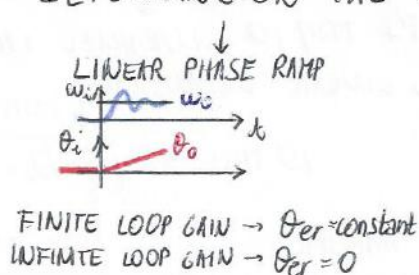 LINEAR PHASE RAMP
ωi
ωo
t
θi
θo
FINITE LOOP GAIN → θer=constant
INFINITE LOOP GAIN → θer=0